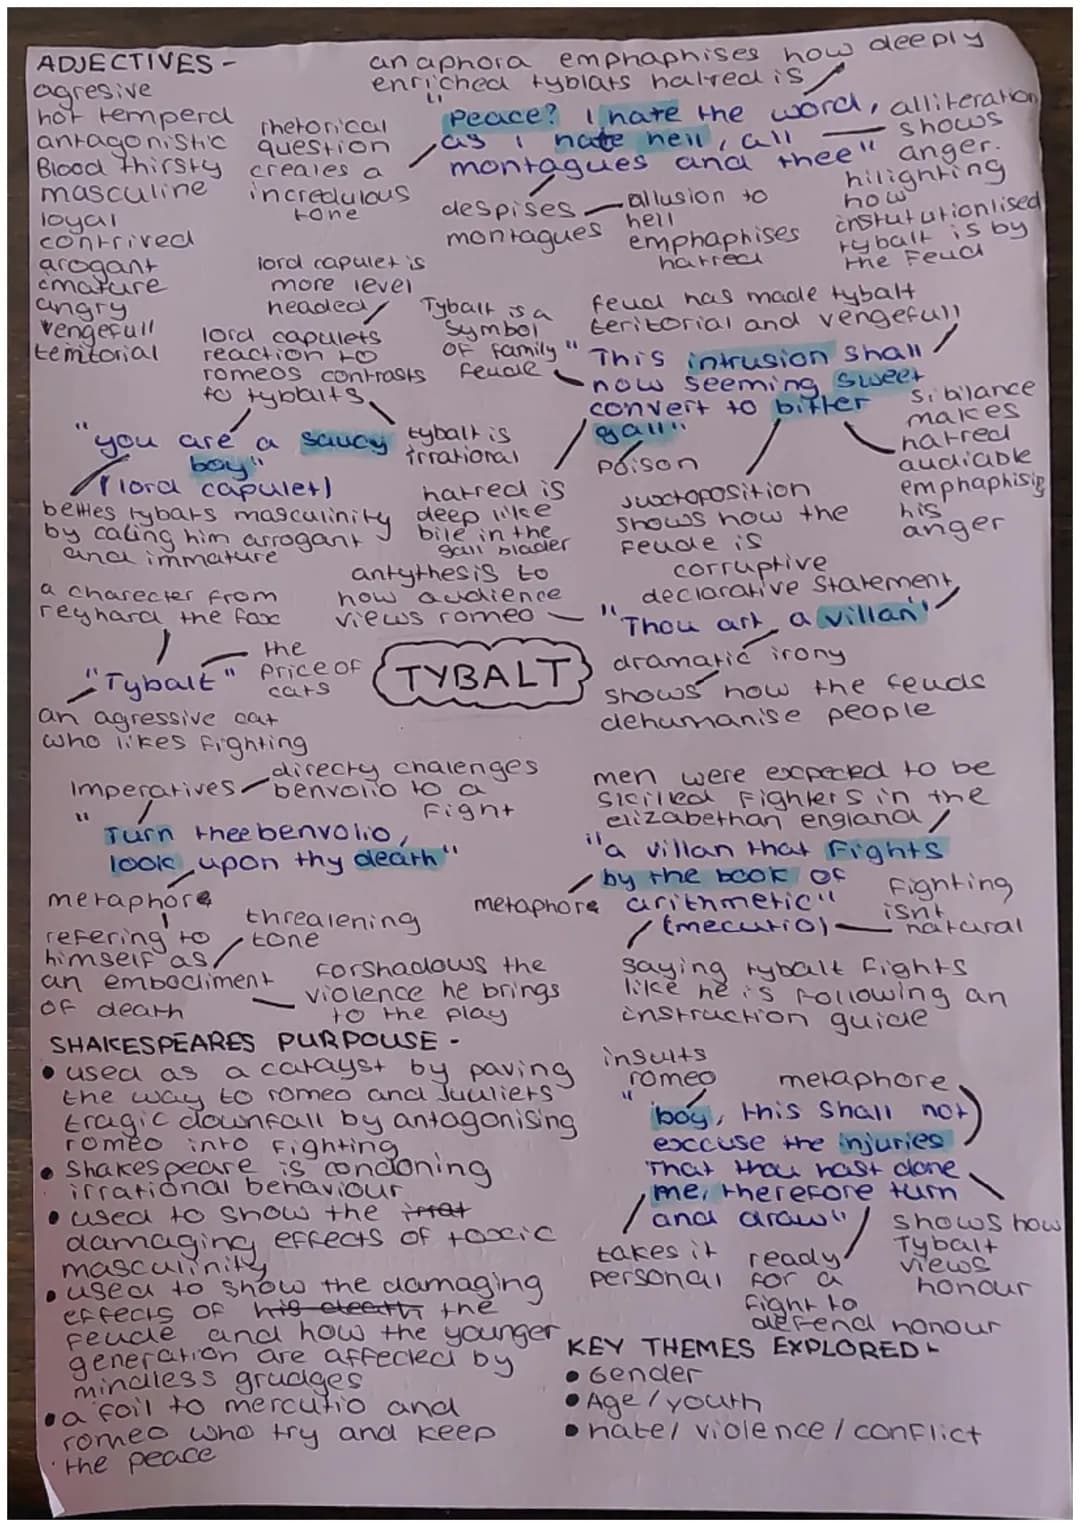 ADJECTIVES -
agresive
hot temperd
antagonistic
Blood thirsty
masculine
loyal
contrived
arogant
imature
angry
vengefull
territorial
anaphora emphaphises how deeply
enriched tyblats hatred is
"Peace? I hate the word,
as I hate hell, all
montagues and thee"
rhetorical
question
creates a
incredulous
tone
alliteration
shows
anger.
hilighting
how
institutionlised
tybalt is by
the Feud
despises
montagues
allusion to
hell
emphaphises
hatred
lord capulet is
more level
headed
lord capulets
reaction to
romeos contrasts
to tybalts
"you are a saucy
boy"
(lord capulet)
belttles tybalts masculinity
by caling him arrogant
and immature
tybalt is
irrational
Tybalt is a
symbol
of family
feude
feud has made tybalt
teritorial and vengefull
"This intrusion shall
now seeming sweet
convert to bitter
gall"
poison
hatred is
deep like
bile in the
gall blader
Juxtoposition
shows how the
feude is
corruptive
sibilance
makes
hatred
audiable
emphaphising
his
anger
a charecter from
reynard the fox
"Tybalt"
the
price of
cats
an agressive cat
who likes fighting
TYBALT
antythesis to
how audience
views romeo
declarative statement
"Thou art a villan"
dramatic irony
shows how the feuds
dehumanise people
Imperatives
directly chalenges
benvolio to a
Fight
"Turn thee benvolio,
look upon thy death"
metaphore
refering to
himself as
an embodiment
of death
threatening
tone
forshadows the
violence he brings
to the play
men were expected to be
skilled fighters in the
elizabethan england
"a villan that Fights
by the book of
arithmetic"
(mecutio)
metaphore
Fighting
isnt
natural
saying tybalt fights
like he is following an
instruction guide
SHAKESPEARES PURPOUSE -
• used as a catalyst by paving
the way to romeo and Juuliets
tragic downfall by antagonising
romeo into fighting
• shakespeare is condoning
irrational behaviour
• used to show the
damaging effects of toxic
masculinity
• used to show the damaging
effects of his death the
feude and how the younger
generation are affected by
mindless grudges
• a foil to mercutio and
romeo who try and keep
the peace
insults
romeo
metaphore
"boy, this shall not
exccuse the injuries
That thou hast done
me, therefore turn
and draw"
takes it
personal
ready
for a
fight to
defend honour
shows how
Tybalt
views
honour
KEY THEMES EXPLORED -
• Gender
• Age / youth
• hate / violence / conflict